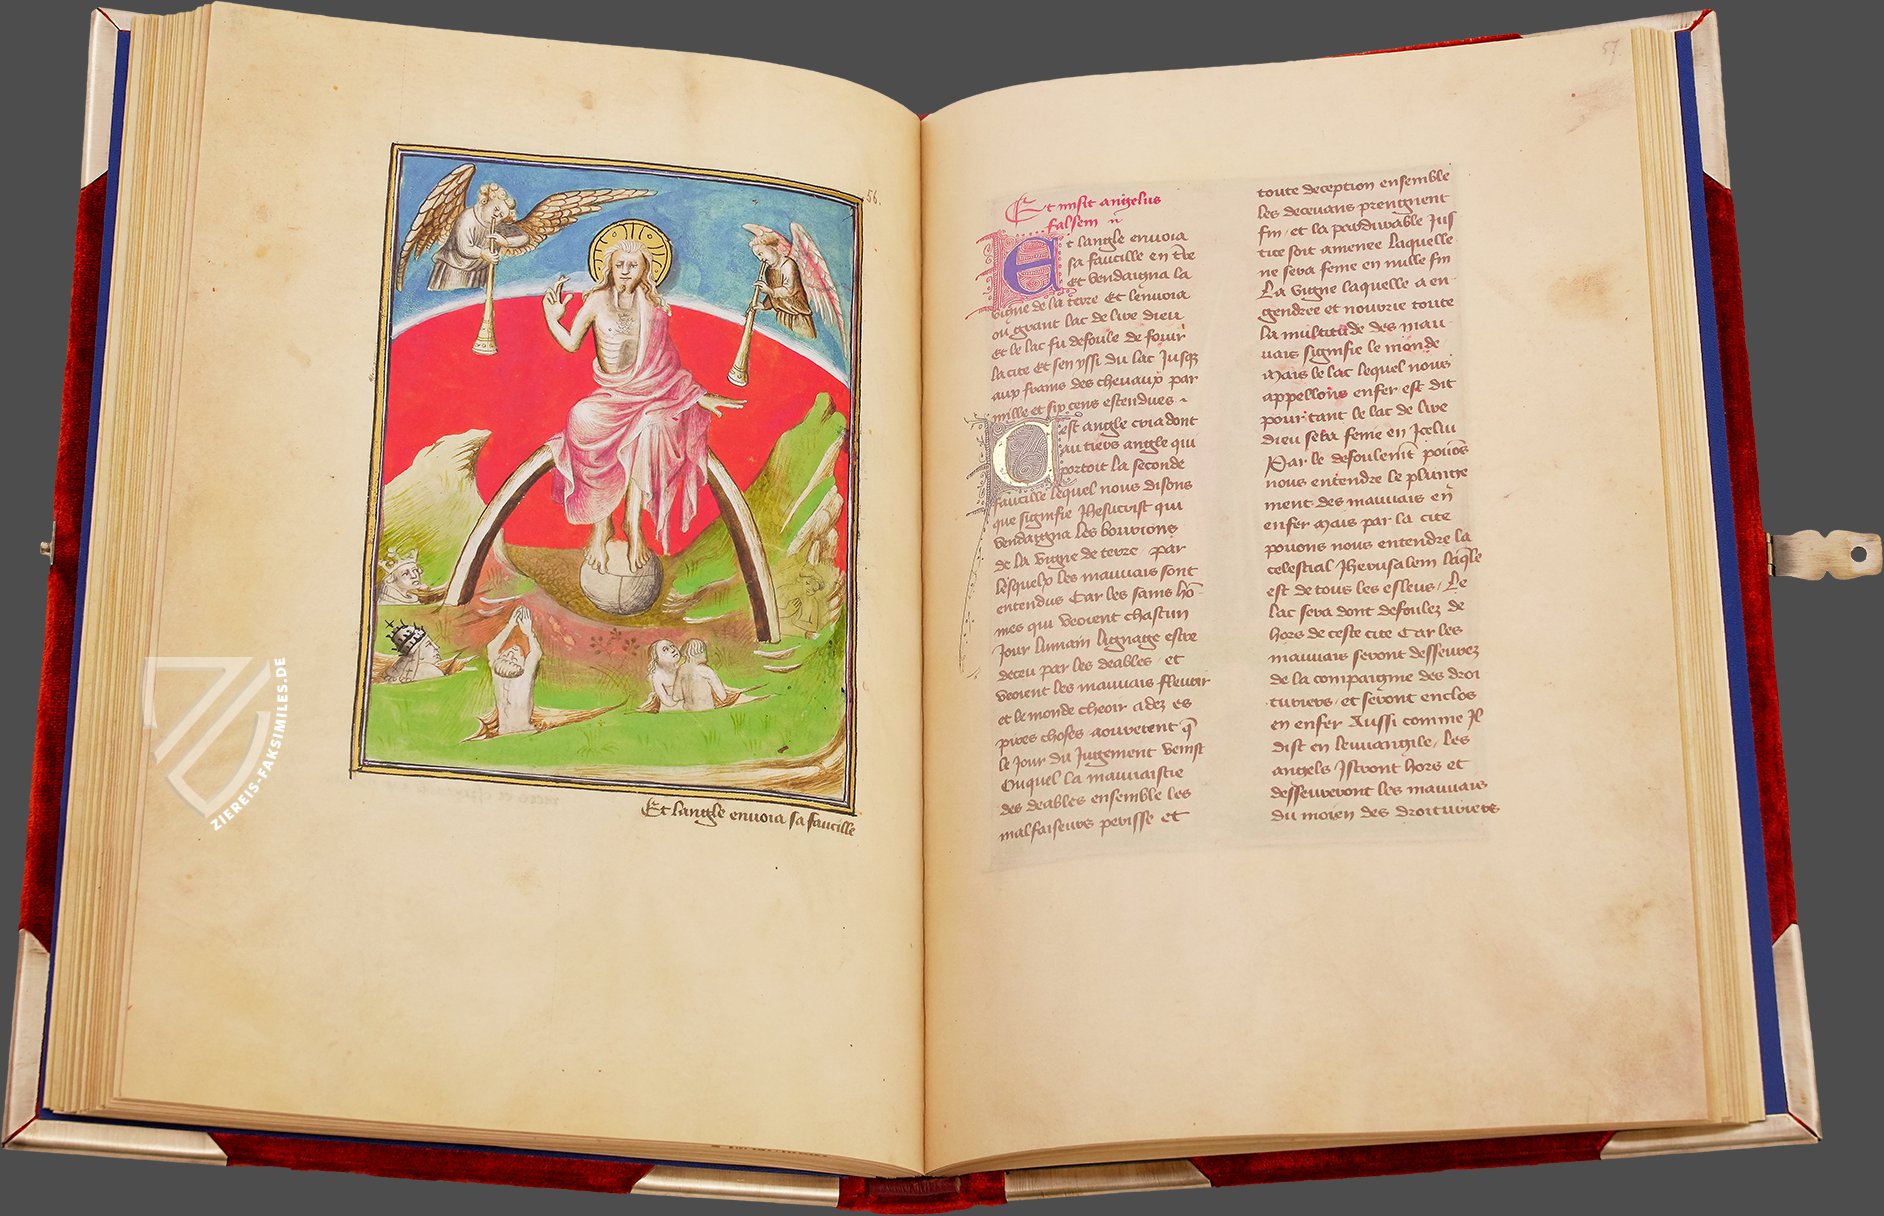 56.
Et langle enuoia sa faucille
ZIEREIS-FAKSIMILES.DE
57.
Et misit angelus
falsem
Et langle enuoia
sa faucille en tre
et vendaigna la
vigne de la terre Et lenuoia
ou grant lac de lire dieu
et le lac fu defoule de four
la cite Et sen yssi du lac Jusq
aux frains des cheuaux par
mille et six cens estendues
Cest angle cria dont
au tiers angle qui
portoit la seconde
faucille lequel nous disons
que signifie Ihesucrist qui
vendaigna les bourions
de la vigne de terre par
lesquelx les mauuais sont
entendus Car les sains ho
mes qui veoient chascun
Jour lumain lignage estre
deceu par les deables et
veoient les mauuais flleurir
et le monde cheoir adez es
pires choses aouverent q
le Jour du Jugement venist
Ouquel la mauuaistie
des deables ensemble les
malfaiseurs perisse et
toute deception ensemble
les deceuans prengnent
fin et la pardurable Jus
tice soit amenee laquelle
ne sera feme en nulle fin
La vigne laquelle a en
gendree et nourrie toute
la multitude des mau
uais signifie le monde
Mais le lac lequel nous
appellons enfer est dit
pour tant le lac de lire
dieu sera feme en Icelui
Par le defoulemt pouons
nous entendre le plunge
ment des mauuais en
enfer Mais par la cite
pouons nous entendre la
celestial Iherusalem laqlle
est de tous les esleus Le
lac sera dont defoulez de
hors de ceste cite Car les
mauuais seront desseurez
de la compaignie des droi
turiers et seront enclos
en enfer Aussi comme Il
dist en leuuangile les
angels Istront hors et
desseureront les mauuais
du moien des droituriers